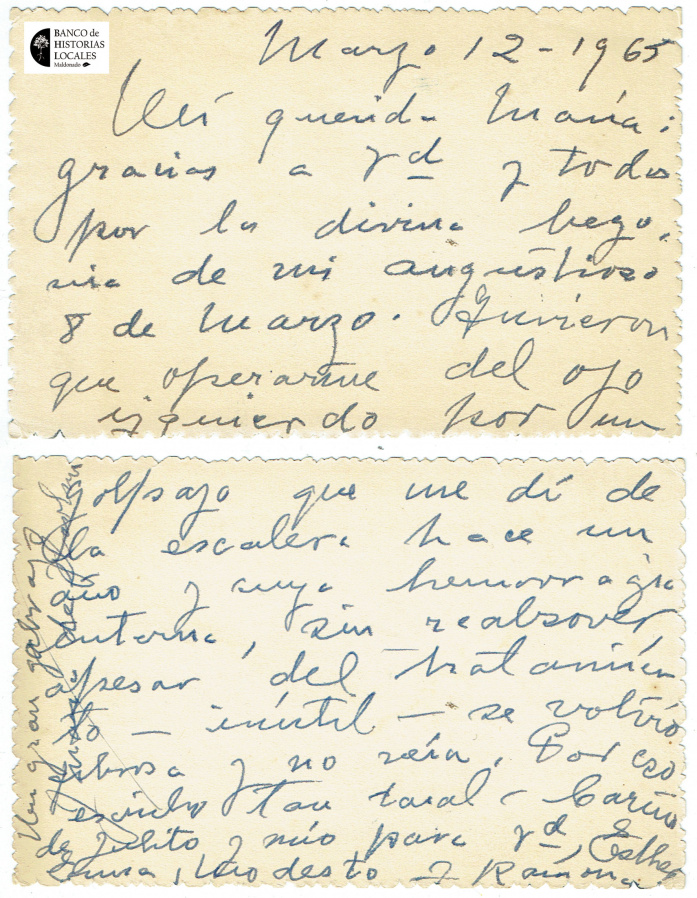 BANCO de
HISTORIAS
LOCALES
Maldonado
Marzo 12-1965
Mi querida María:
gracias a Vd y todos
por la divina bego,
nia de mi angustioso
8 de Marzo. Tuvieron
que operarme del ojo
izquierdo por un
golpazo que me dí de
la escalera hace un
año y cuya hemorragia
interna, sin reabsover,
apesar del tratamien
to - inútil - se volvió
fibrosa y no veía. Por eso
escribo tan mal - Cariño
de Julito y mío para Vd, Esther
Ema, Modesto y Ramona.
Un gran abrazo de